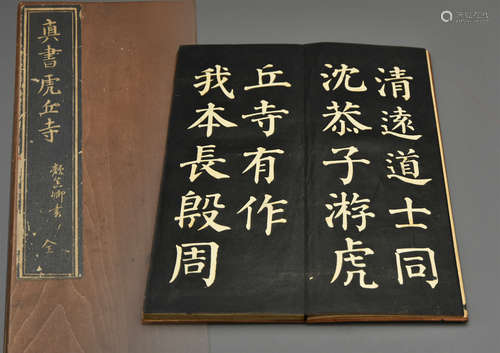 清遠道士同
沈恭子游虎
丘寺有作
我本長殷周
真書虎丘寺
顏真卿書
全